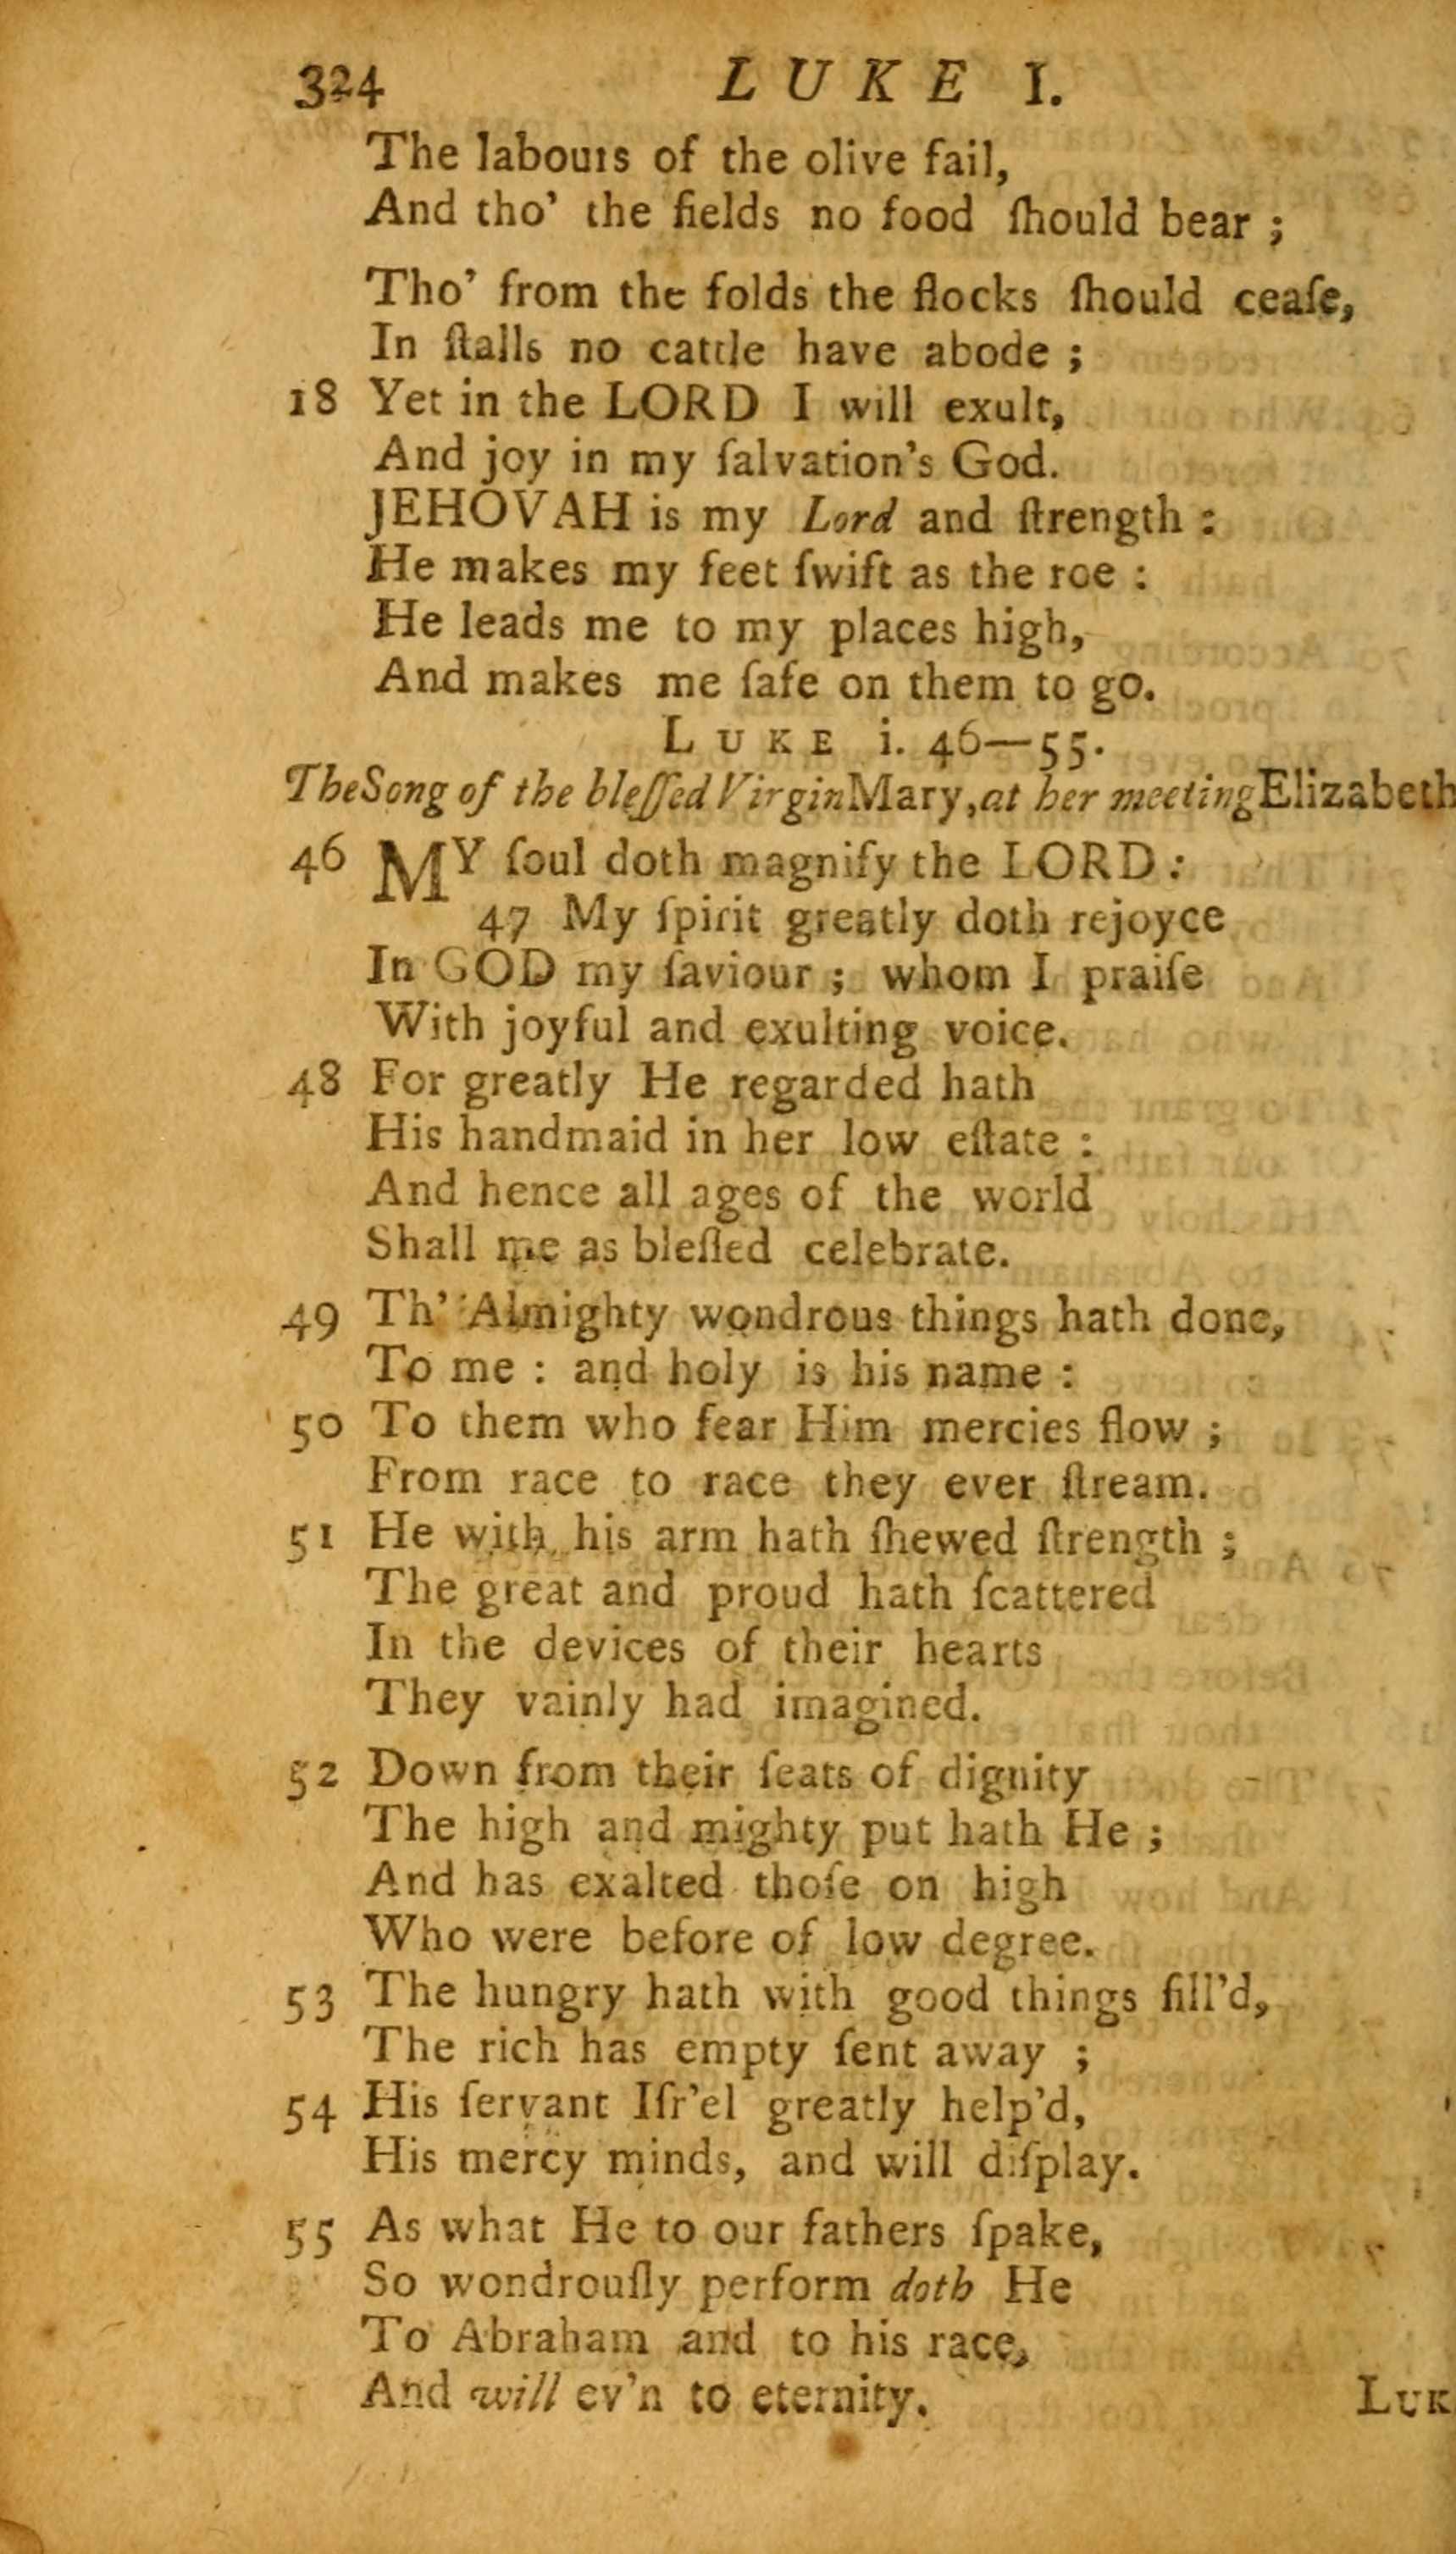 324 LUKE I.
The labours of the olive fail,
And tho' the fields no food ſhould bear ;
Tho' from the folds the flocks ſhould ceaſe,
In ſtalls no cattle have abode ;
18 Yet in the LORD I will exult,
And joy in my ſalvation's God.
JEHOVAH is my Lord and ſtrength :
He makes my feet ſwift as the roe :
He leads me to my places high,
And makes me ſafe on them to go.
LUKE i. 46—55.
The Song of the bleſſed Virgin Mary, at her meeting Elizabeth
46 MY ſoul doth magnify the LORD :
47 My ſpirit greatly doth rejoyce
In GOD my ſaviour ; whom I praiſe
With joyful and exulting voice.
48 For greatly He regarded hath
His handmaid in her low eſtate :
And hence all ages of the world
Shall me as bleſſed celebrate.
49 Th' Almighty wondrous things hath done,
To me : and holy is his name :
50 To them who fear Him mercies flow ;
From race to race they ever ſtream.
51 He with his arm hath ſhewed ſtrength ;
The great and proud hath ſcattered
In the devices of their hearts
They vainly had imagined.
52 Down from their ſeats of dignity
The high and mighty put hath He ;
And has exalted thoſe on high
Who were before of low degree.
53 The hungry hath with good things fill'd,
The rich has empty ſent away ;
54 His ſervant Iſr'el greatly help'd,
His mercy minds, and will diſplay.
55 As what He to our fathers ſpake,
So wondrouſly perform doth He
To Abraham and to his race,
And will ev'n to eternity.
LUK